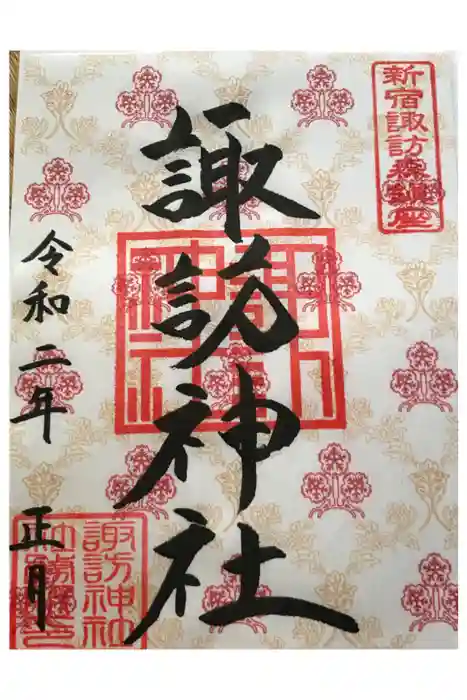 新宿諏訪森鎮座
諏訪神社
諏訪神社
令和二年 正月
諏訪神社